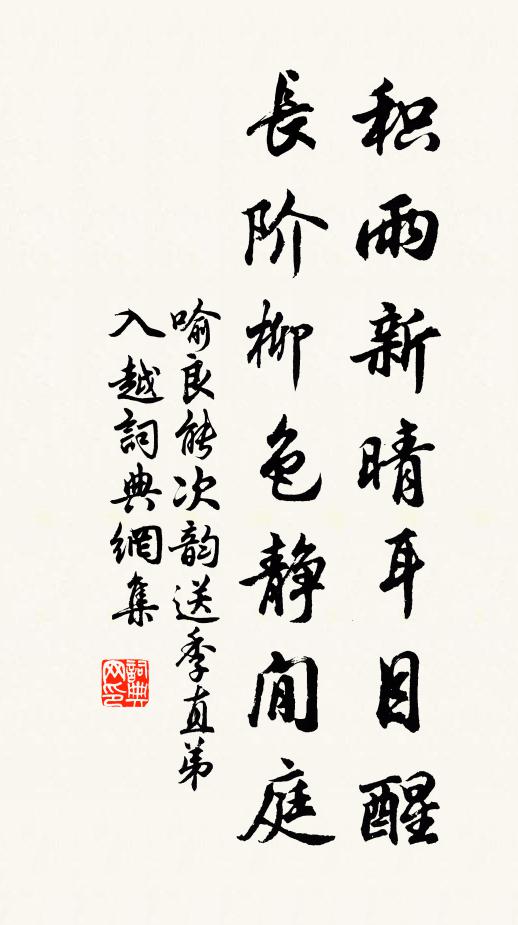 积雨新晴耳目醒
長阶柳色静闲庭
喻良能次韵送季直弟
入越詞典網集
詞典网印